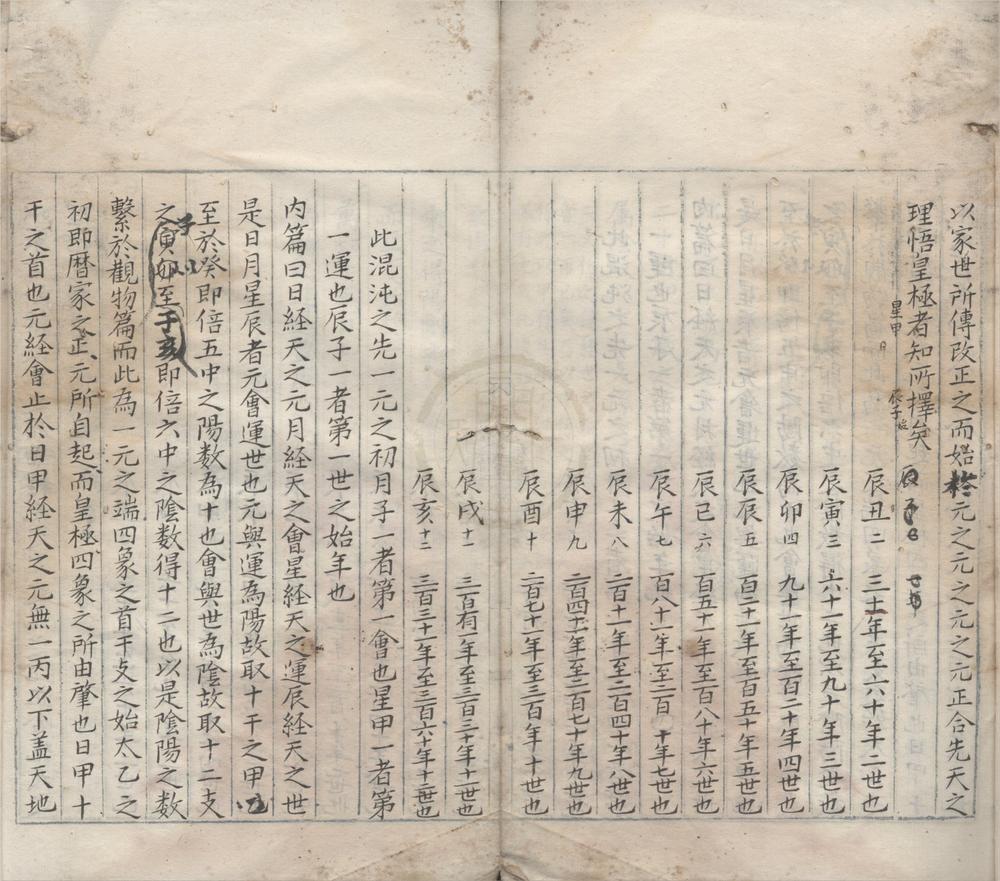 以家世所傳改正之而始於元之元之元之元正合先天之
理悟皇極者知所擇矣
星甲
辰子
辰丑二 三十一年至六十年二世也
辰寅三 六十一年至九十年三世也
辰卯四 九十一年至百二十年四世也
辰辰五 百二十一年至百五十年五世也
辰巳六 百五十一年至百八十年六世也
辰午七 百八十一年至二百一十年七世也
辰未八 二百十一年至二百四十年八世也
辰申九 二百四十一年至二百七十年九世也
辰酉十 二百七十一年至三百年十世也
辰戌十一 三百有一年至三百三十年十一世也
辰亥十二 三百三十一年至三百六十年十二世也
此混沌之先一元之初月子一者第一會也星甲一者第
一運也辰子一者第一世之始年也
内篇曰日経天之元月経天之會星経天之運辰経天之世
是日月星辰者元會運世也元與運為陽故取十干之甲
至於癸即倍五中之陽數為十也會與世為陰故取十二支
之寅卯至子亥即倍六中之陰數得十二也以是陰陽之数
繫於觀物篇而此為一元之端四象之首干支之始太乙之
初即曆家之正元所自起而皇極四象之所由肇也日甲十
干之首也元経會止於日甲経天之元無一丙以下盖天地